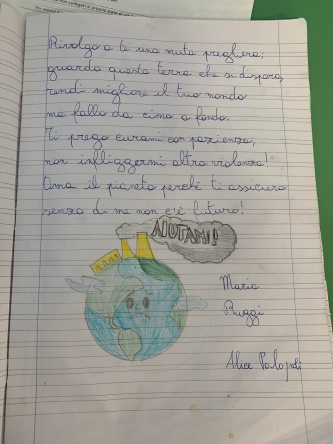 Rivolgo a te una muta preghiera:
guarda questa terra che si dispera,
rendi migliore il tuo mondo
ma fallo da cima a fondo.
Ti prego curami con pazienza,
non infliggermi altra violenza!
Ama il pianeta perché ti assicuro
senza di me non c'è futuro!
AIUTAMI!
Maria
Ruggi
Alice